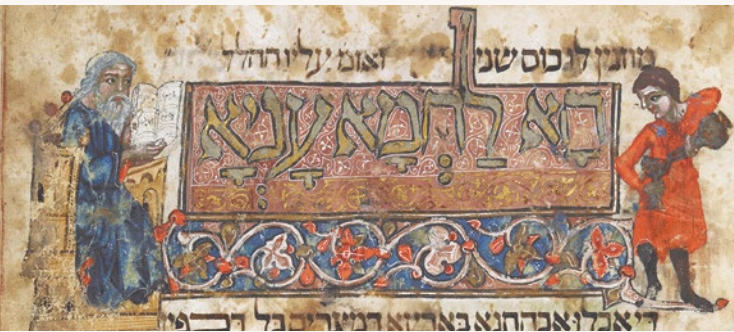 מוזגין לו כוס שני ואומ עליו
הָא לַחְמָא עָנְיָא
די אכלו אבהתנא בארעא דמצרים כל דכפין